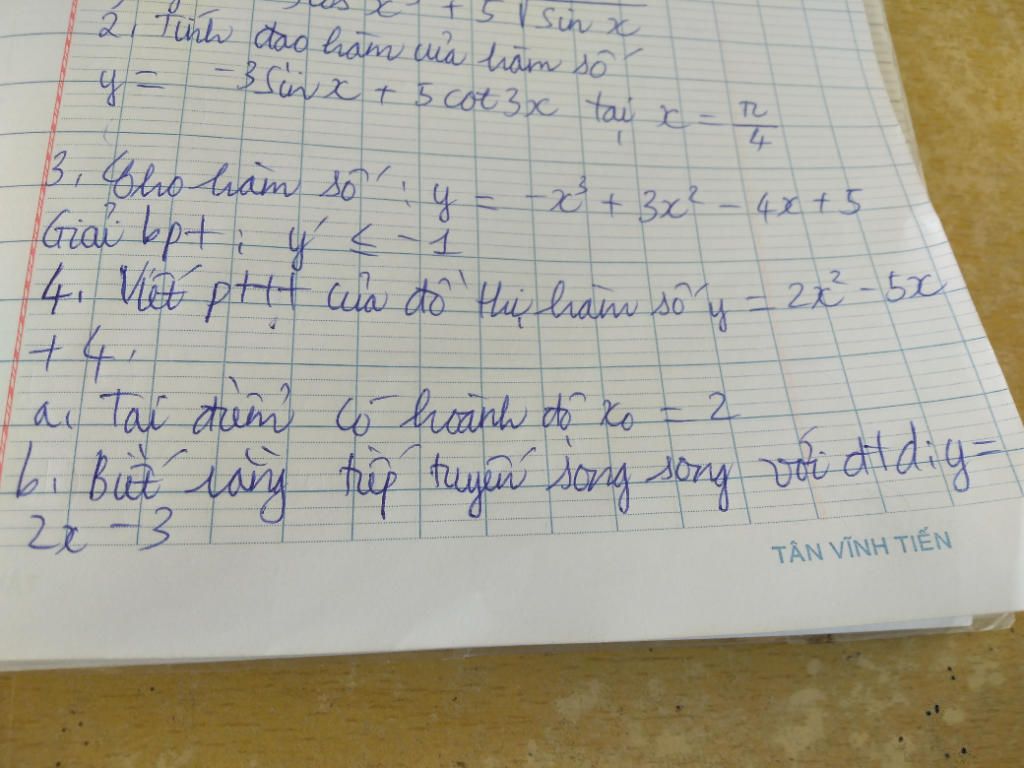 x + 5 √sin x
2, Tính đạo hàm của hàm số
y = -3sin x + 5 cot 3x tại x = π/4
3, Cho hàm số : y = -x³ + 3x² - 4x + 5
Giải bpt : y' ≤ -1
4, Viết pttt của đồ thị hàm số y = 2x² - 5x
+ 4.
a, Tại điểm có hoành độ x₀ = 2
b, Biết rằng tiếp tuyến song song với đt d: y =
2x - 3
TÂN VĨNH TIẾN